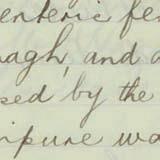 enteric fe
nagh, and a
sed by the
impure wa